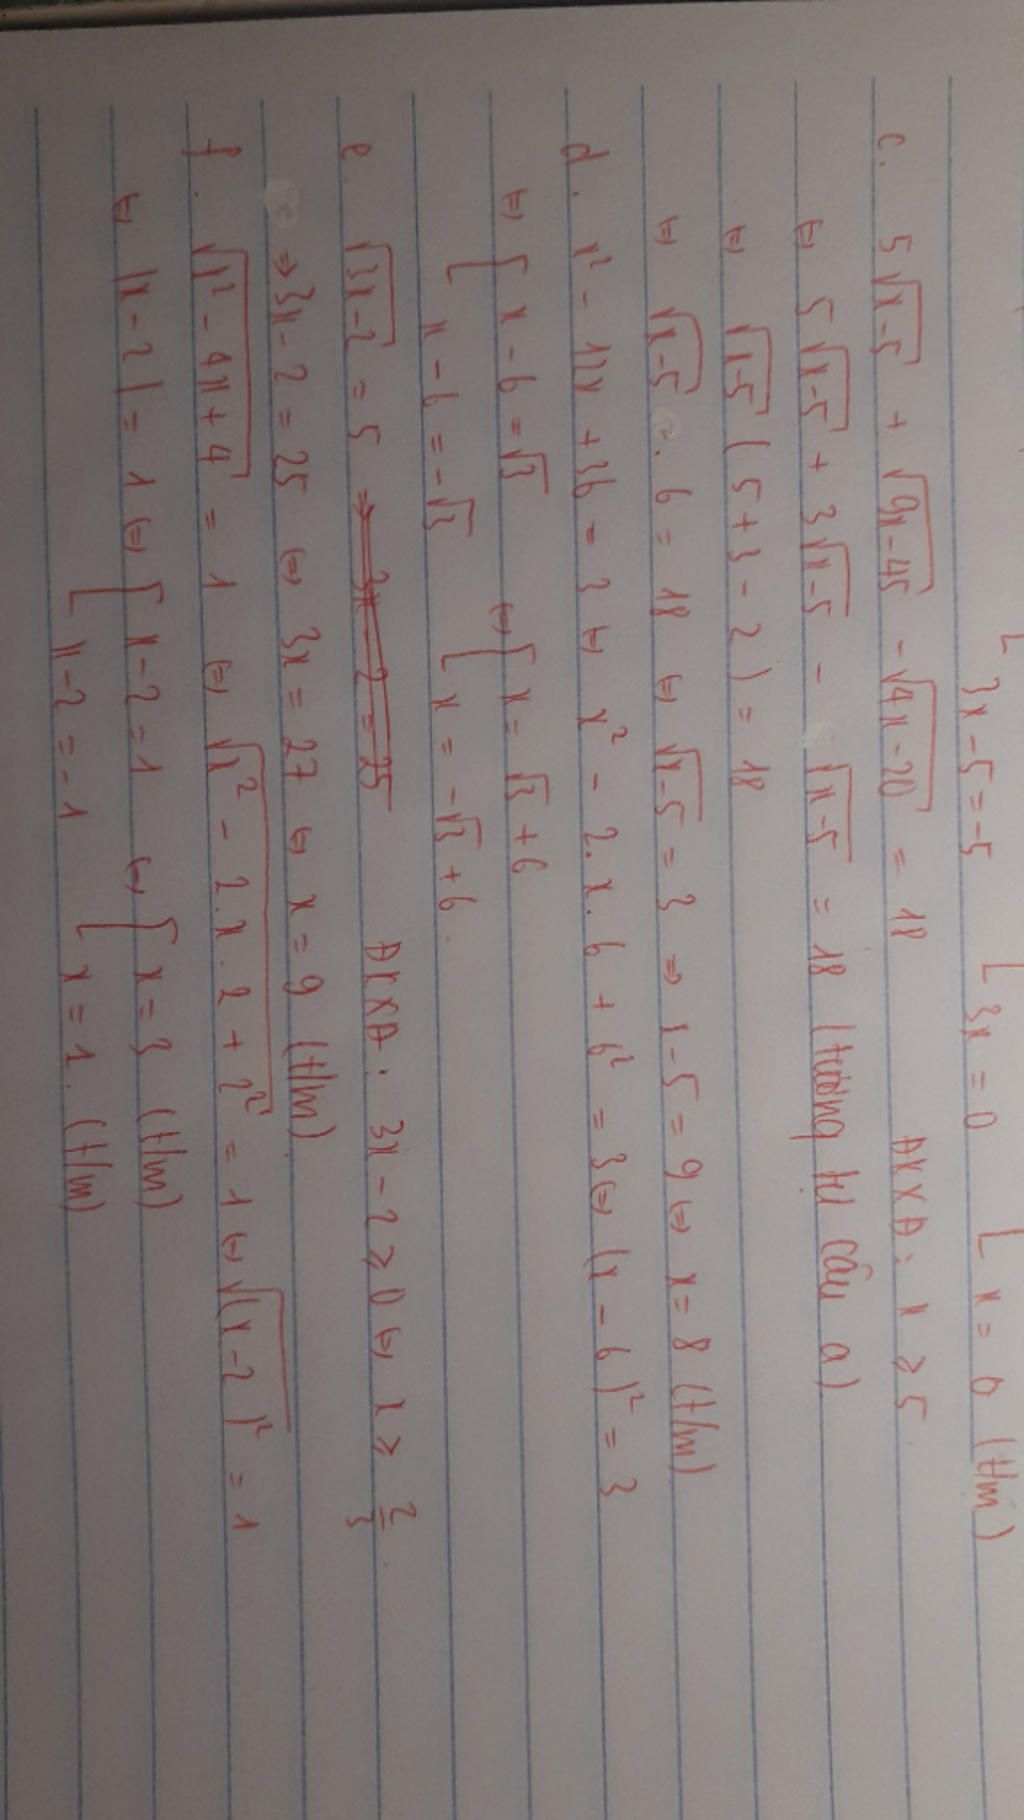 [ 3x - 5 = -5 [ 3x = 0 [ x = 0 (t/m)
c. 5√(x-5) + √(9x-45) - √(4x-20) = 18 ĐKXĐ: x ≥ 5
⇔ 5√(x-5) + 3√(x-5) - √(x-5) = 18 (tương tự câu a)
⇔ √(x-5) (5+3-2) = 18
⇔ √(x-5) . 6 = 18 ⇔ √(x-5) = 3 ⇒ 1-5 = 9 ⇔ x = 8 (t/m)
d. x² - 12x + 36 = 3 ⇔ x² - 2.x.6 + 6² = 3 ⇔ (x-6)² = 3
⇔ [ x - 6 = √3 ⇔ [ x = √3 + 6
[ x - 6 = -√3 [ x = -√3 + 6.
e. √(3x-2) = 5 ⇒ 3x - 2 = 25 ĐKXĐ: 3x - 2 ≥ 0 ⇔ x ≥ 2/3.
⇒ 3x - 2 = 25 ⇔ 3x = 27 ⇔ x = 9 (t/m)
f. √(x² - 4x + 4) = 1 ⇔ √(x² - 2.x.2 + 2²) = 1 ⇔ √((x-2)²) = 1
⇔ |x - 2| = 1 ⇔ [ x - 2 = 1 ⇔ [ x = 3 (t/m)
[ x - 2 = -1 [ x = 1. (t/m)